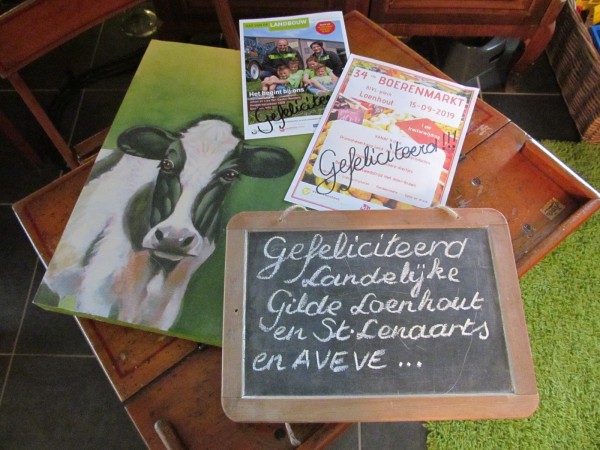 LANDBOUW
Het begint bij ons
Gefeliciteerd
34ste BOERENMARKT
Loenhout 15-09-2019
Gefeliciteerd!!!
Gefeliciteerd
Landelijke
Gilde Loenhout
en St. Lenaarts
en AVEVE ...